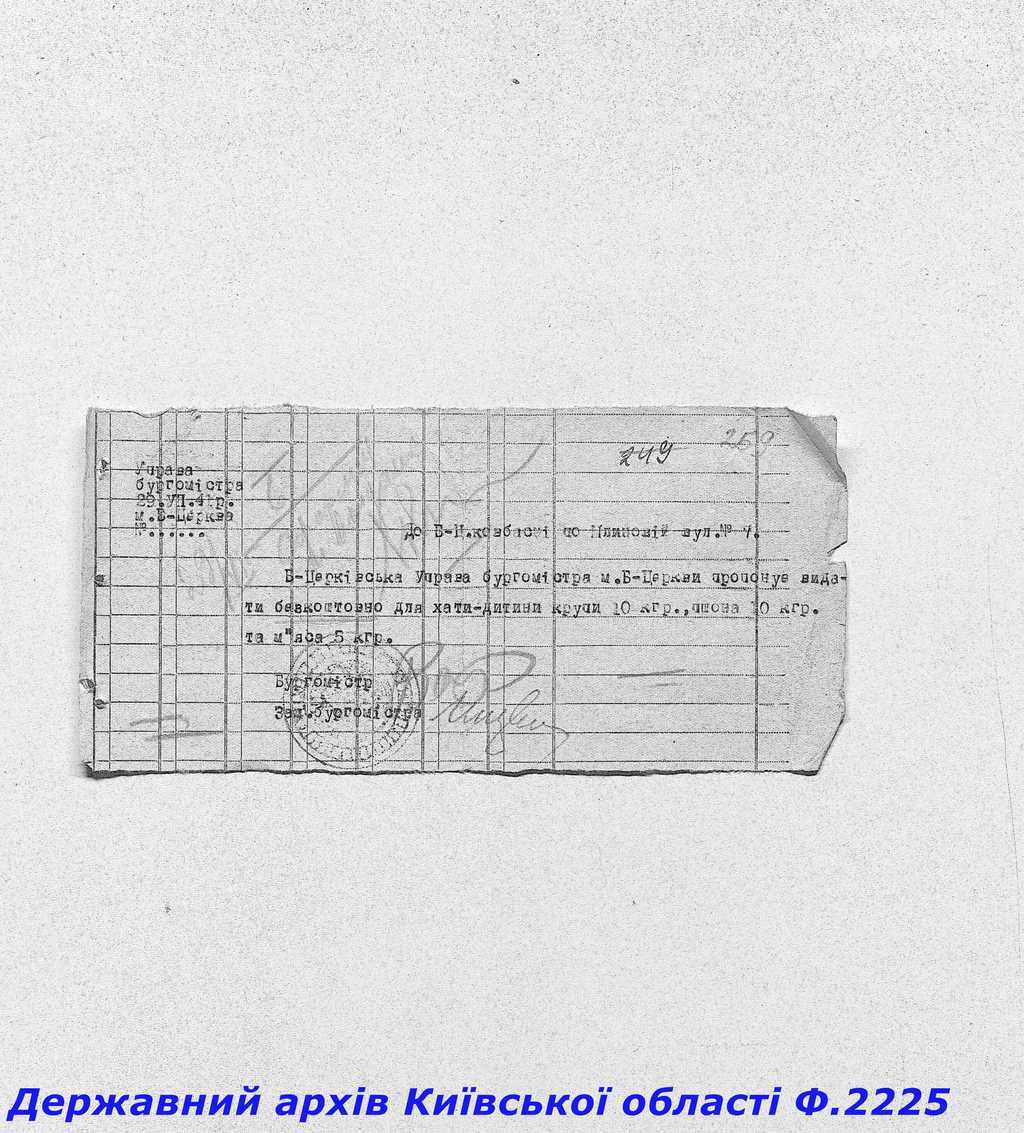 249 259
Управа
бургомістра
29.УП.41р.
м.Б-Церква
№.......
до Б-Ц.ковбасні по Млиновій вул.№ 7.
Б-Церківська Управа бургомістра м.Б-Церкви пропонує вида-
ти безкоштовно для хати-дитини крупи 10 кгр.,пшона 10 кгр.
та м"яса 5 кгр.
Бургомістр
Зам.бургомістра
Державний архів Київської області Ф.2225